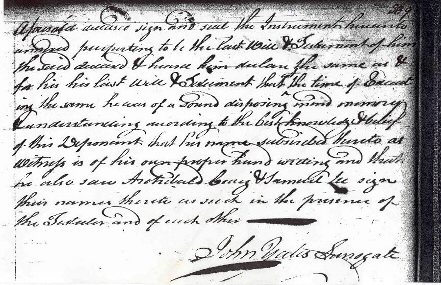 Aforesaid deceased sign and seal the Instrument hereunto
annexed purporting to be the Last Will & Testament of him
the said deceased & heard him declare the same as &
for his Last Will & Testiment that the time of Execut
ing the same he was of a Sound disposing mind memory
& understanding according to the best knowledge & belief
of this Deponent that his name subscribed thereto as
Witness is of his own proper hand writing and that
he also saw Archibald Craig & Samuel Lee sign
their names thereto as such in the presence of
the Testator and of each other
John Yates Surrogate